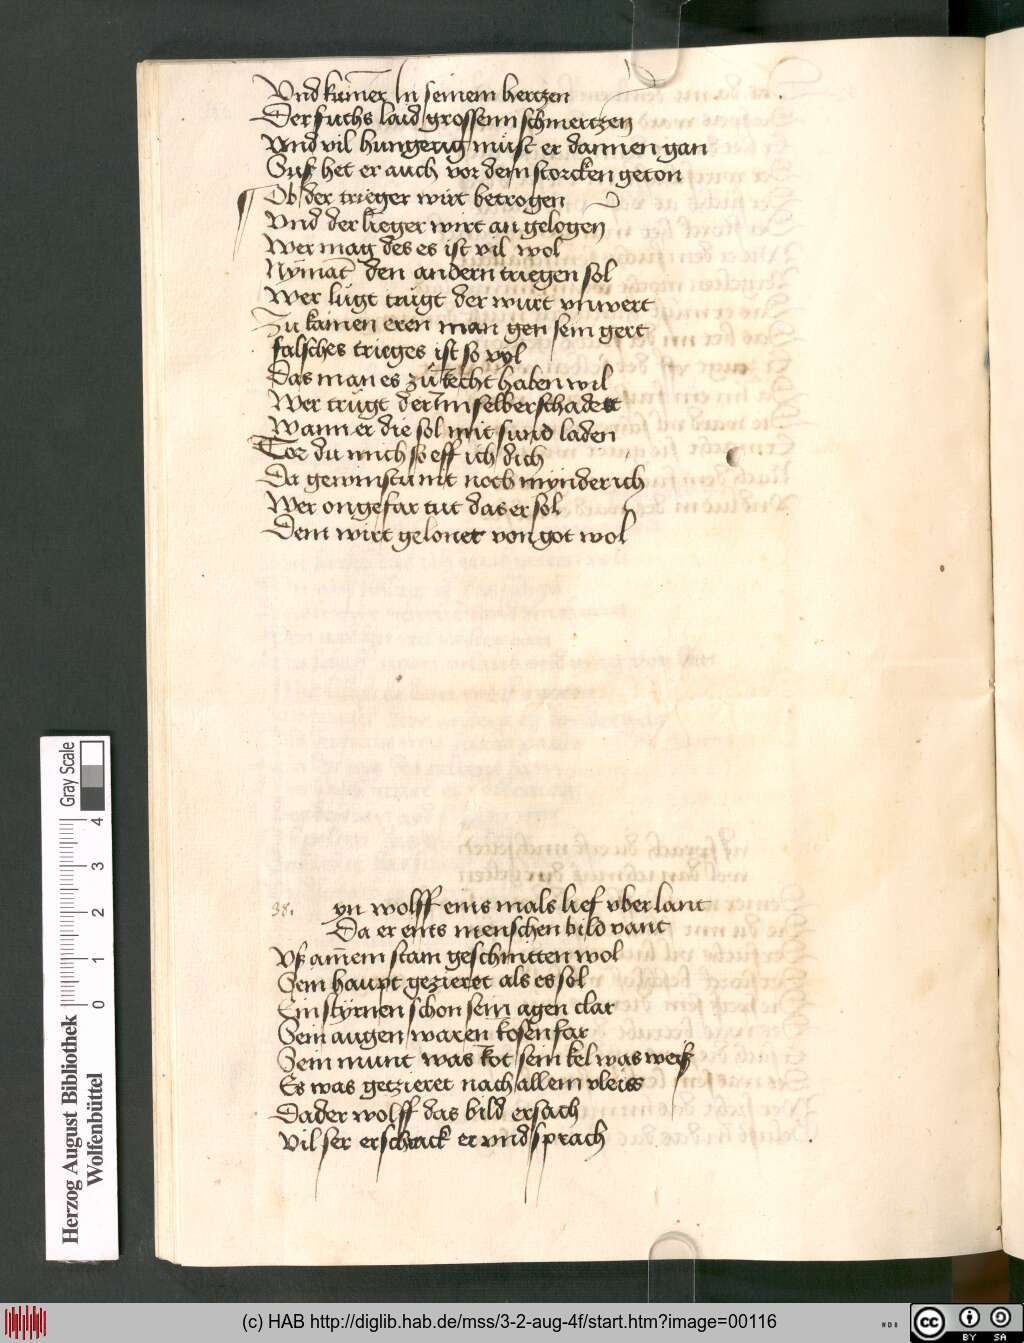 Vnd kum̄er In seinem hertzen
Der fuchs laid grossenn schmertzen
Vnd vil hungerig můst er dannen gan
Suß het er auch vor dem storcken geton
Ob der trieger wirt betrogen
Vnd der lieger wirt an gelogen
Wer mag des es ist vil wol
Nÿmāt den andern triegen sol
Wer lůgt trůgt der wurt vnwert
Zu kainen eren man gen sein gert
falsches trieges ist so vol
Das man es zů recht haben wil
Wer trůgt der im selber schadett
Wann er die sol mit sund laden
Tor du mich so eff ich dich
Da gewinstu nit noch mynder ich
Wer on gefar tut das er sol
Dem wirt gelonet von got wol
38. yn wolff eins mals lief vber lant
Da er eins menschen bild vant
Vß ainem stain geschnitten wol
Sein haupt gezieret als es sol
Ein styrnen schon sein agen clar
Sein augen waren rosenfar
Sein munt was rot sein kel was weiß
Es was getzieret nach allem vleiss
Da der wolff das bild ersach
Vil ser erschrack er vnd sprach
Herzog August Bibliothek
Wolfenbüttel
Gray Scale
0 1 2 3 4
(c) HAB http://diglib.hab.de/mss/3-2-aug-4f/start.htm?image=00116
cc BY SA